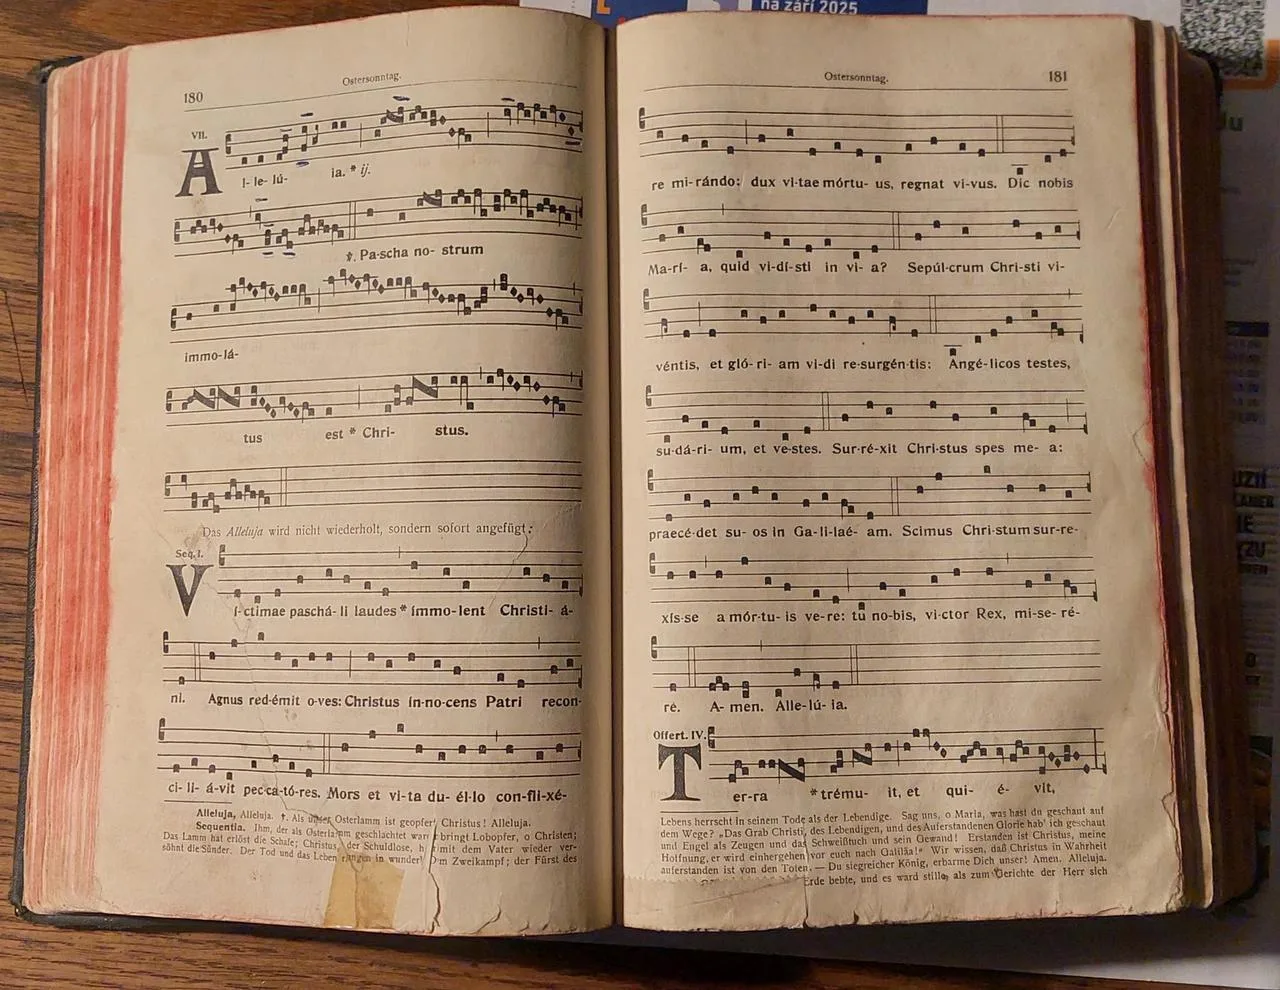 na září 2025
180
Ostersonntag.
VII.
Al- le- lú- ia. * ij.
℣. Pa-scha no- strum
immo-lá-
tus est * Chri- stus.
Das Alleluja wird nicht wiederholt, sondern sofort angefügt:
Seq. I.
Ví-ctimae paschá-li laudes * ímmo-lent Christi- á-
ni. Agnus red-émit o-ves: Christus ín-no-cens Patri recon-
ci- li- á-vit pec-ca-tó-res. Mors et vi-ta du- él-lo con-fli-xé-
Alleluja, Alleluja. ℣. Als unser Osterlamm ist geopfert Christus! Alleluja.
Sequentia. Ihm, der als Osterlamm geschlachtet war, bringet Lobopfer, o Christen;
Das Lamm hat erlöst die Schafe; Christus, der Schuldlose, mit dem Vater wieder ver-
söhnt die Sünder. Der Tod und das Leben rangen in Zweikampf; der Fürst des
Ostersonntag.
181
re mi-rándo: dux vi-tae mórtu- us, regnat vi-vus. Dic nobis
Ma-rí- a, quid vi-dí-sti in vi- a? Sepúl-crum Chri-sti vi-
véntis, et gló-ri- am vi-di re-surgén-tis: Angé-licos testes,
su-dá-ri- um, et ve-stes. Sur-ré-xit Chri-stus spes me- a:
praecé-det su- os in Ga-li-laé- am. Scimus Chri-stum sur-re-
xís-se a mór-tu- is ve-re: tu no-bis, vi-ctor Rex, mi-se-ré-
re. A-men. Alle-lú-ia.
Offert. IV.
Ter-ra * trému- it, et qui- é- vit,
Lebens herrscht in seinem Tode als der Lebendige. Sag uns, o Maria, was hast du geschaut auf
dem Wege? „Das Grab Christi, des Lebendigen, und des Auferstandenen Glorie hab' ich geschaut
und Engel als Zeugen und das Schweißtuch und sein Gewand! Erstanden ist Christus, meine
Hoffnung, er wird einhergehen vor euch nach Galiläa!" Wir wissen, daß Christus in Wahrheit
auferstanden ist von den Toten. — Du siegreicher König, erbarme Dich unser! Amen. Alleluja.
Erde bebte, und es ward stille, als zum Gerichte der Herr sich